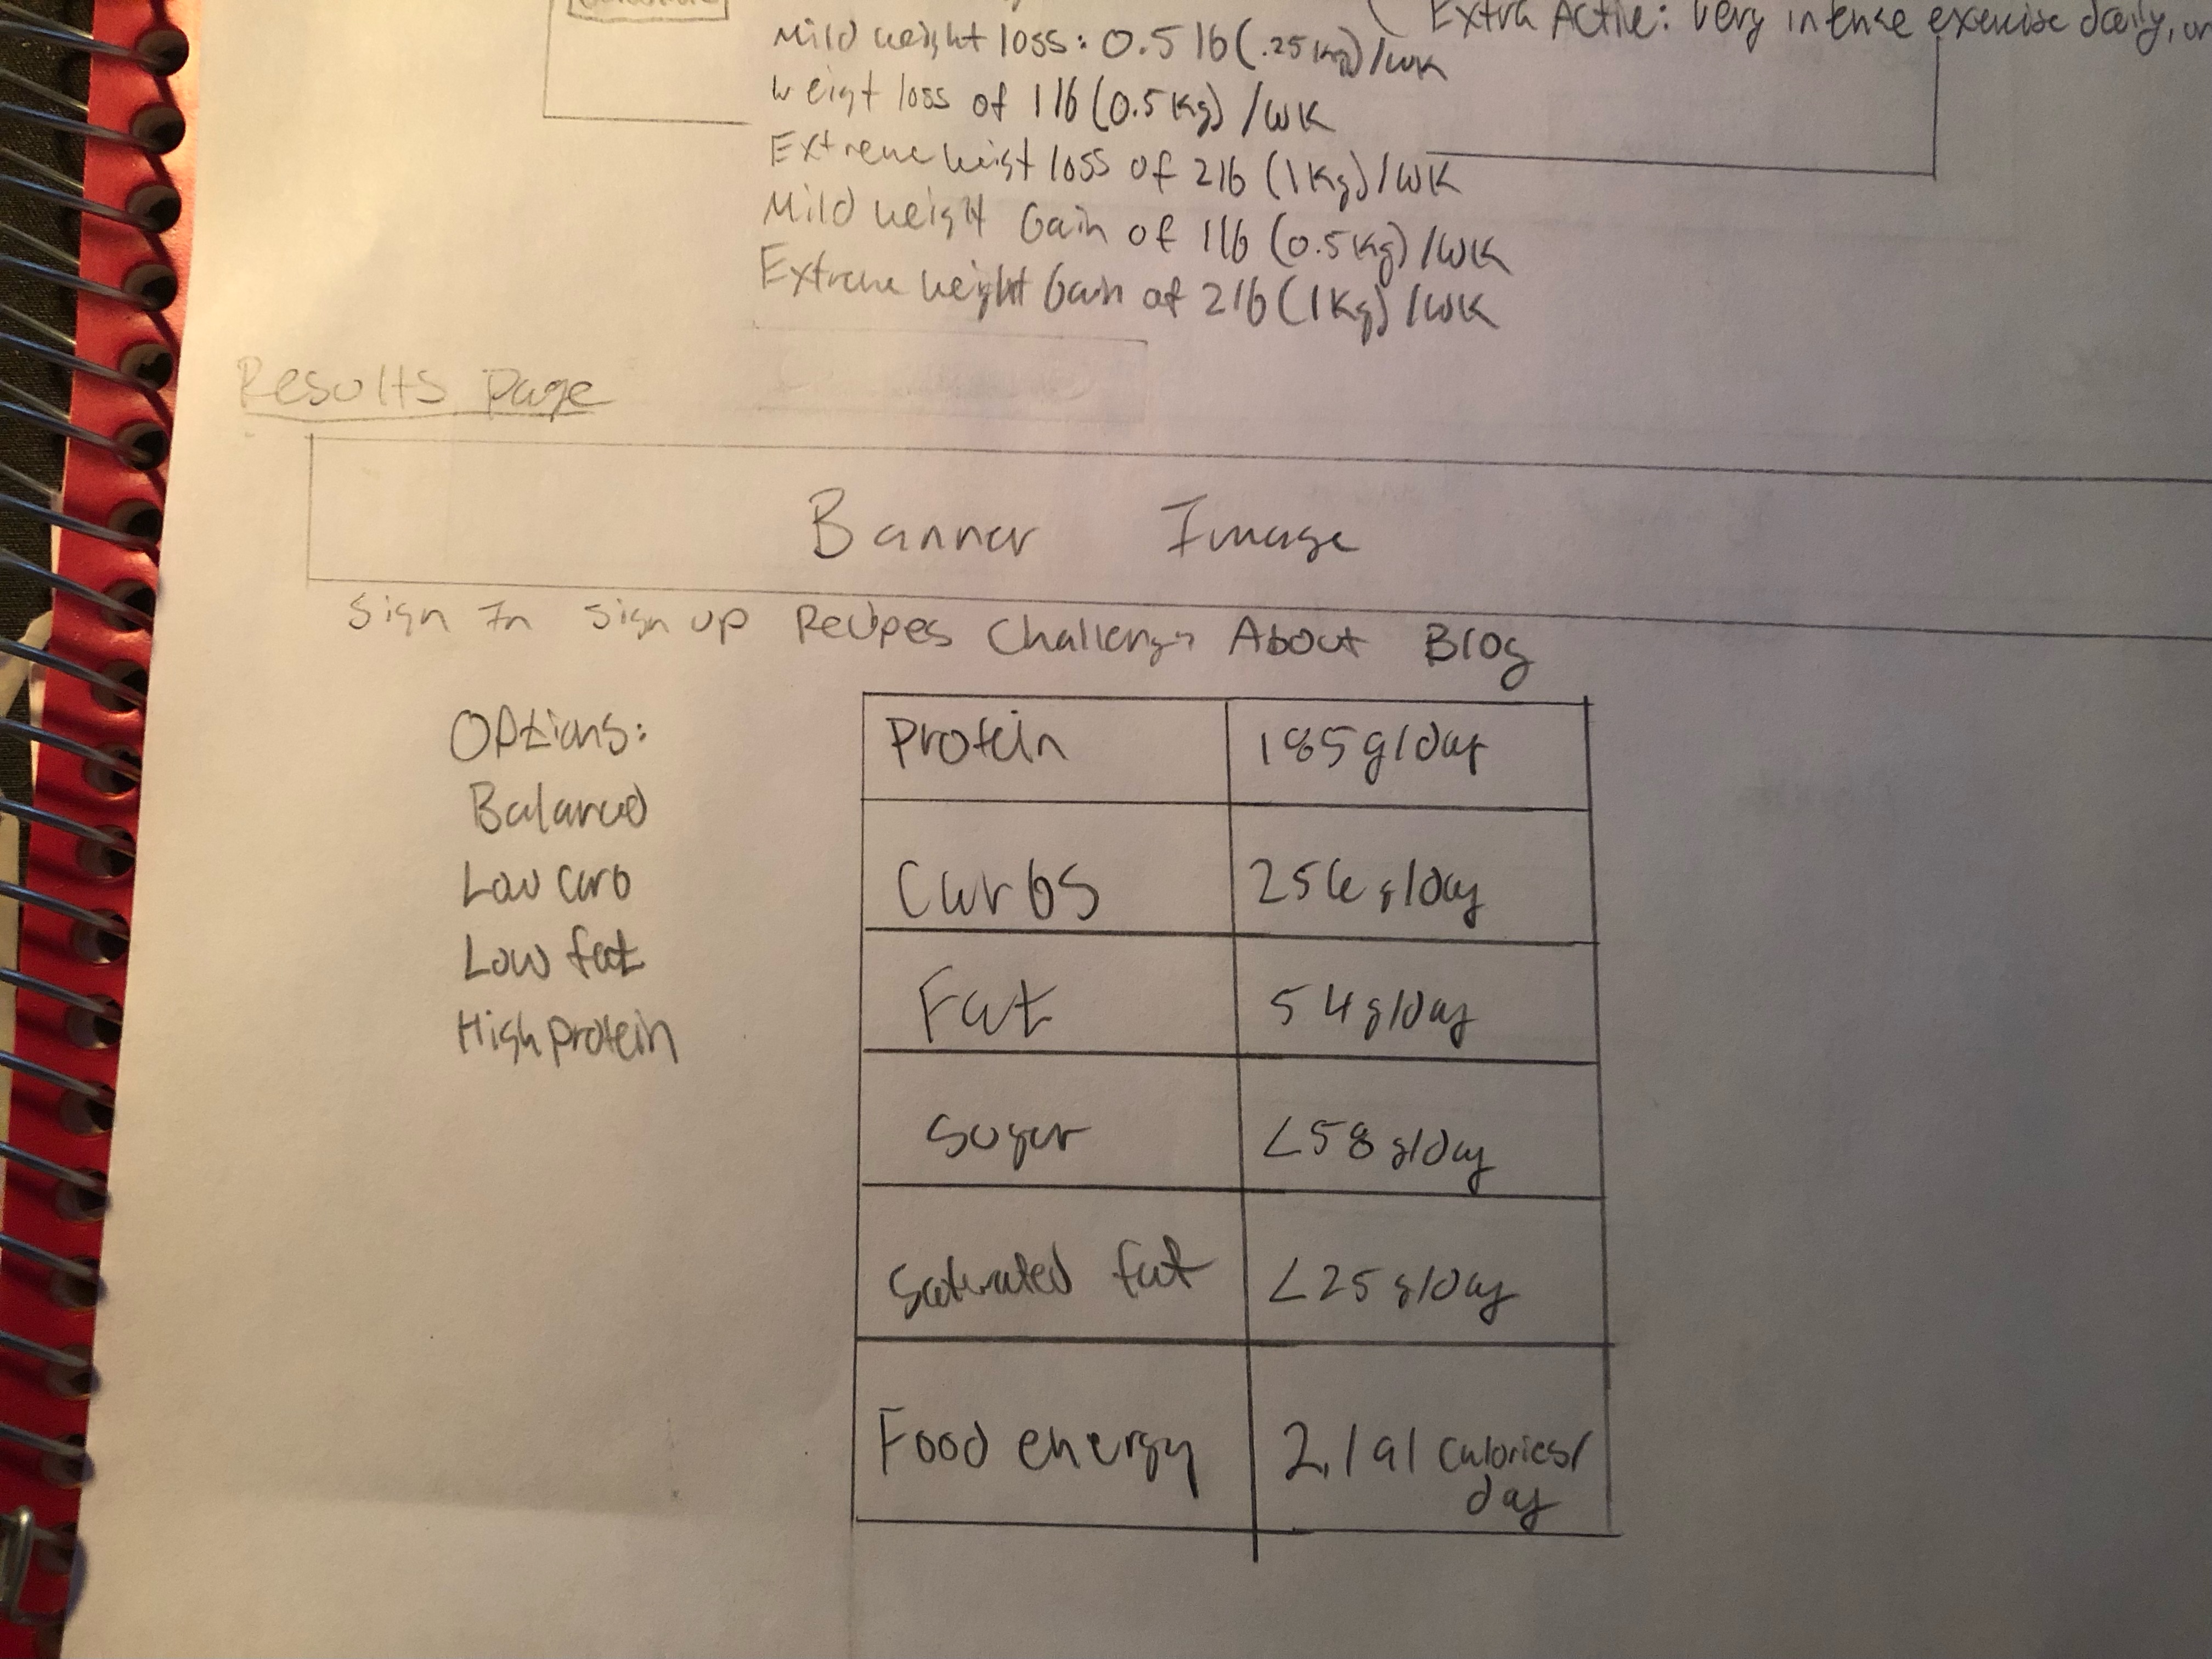 Extra Active: very intense exercise daily, or
Mild weight loss: 0.5 lb (.25 kg) /wk
Weigt loss of 1 lb (0.5 Kg) /WK
Extreme weigt loss of 2 lb (1 Kg) /WK
Mild weight Gain of 1 lb (0.5 Kg) /WK
Extreme weight Gain of 2 lb (1 Kg) /WK
Results page
Banner Image
Sign In Sign up Recipes Challenge About Blog
Options:
Balanced
Low carb
Low fat
High protein
Protein 185 g/day
Carbs 256 g/day
Fat 54 g/day
Sugar <58 g/day
Saturated fat <25 g/day
Food energy 2,191 calories/
day